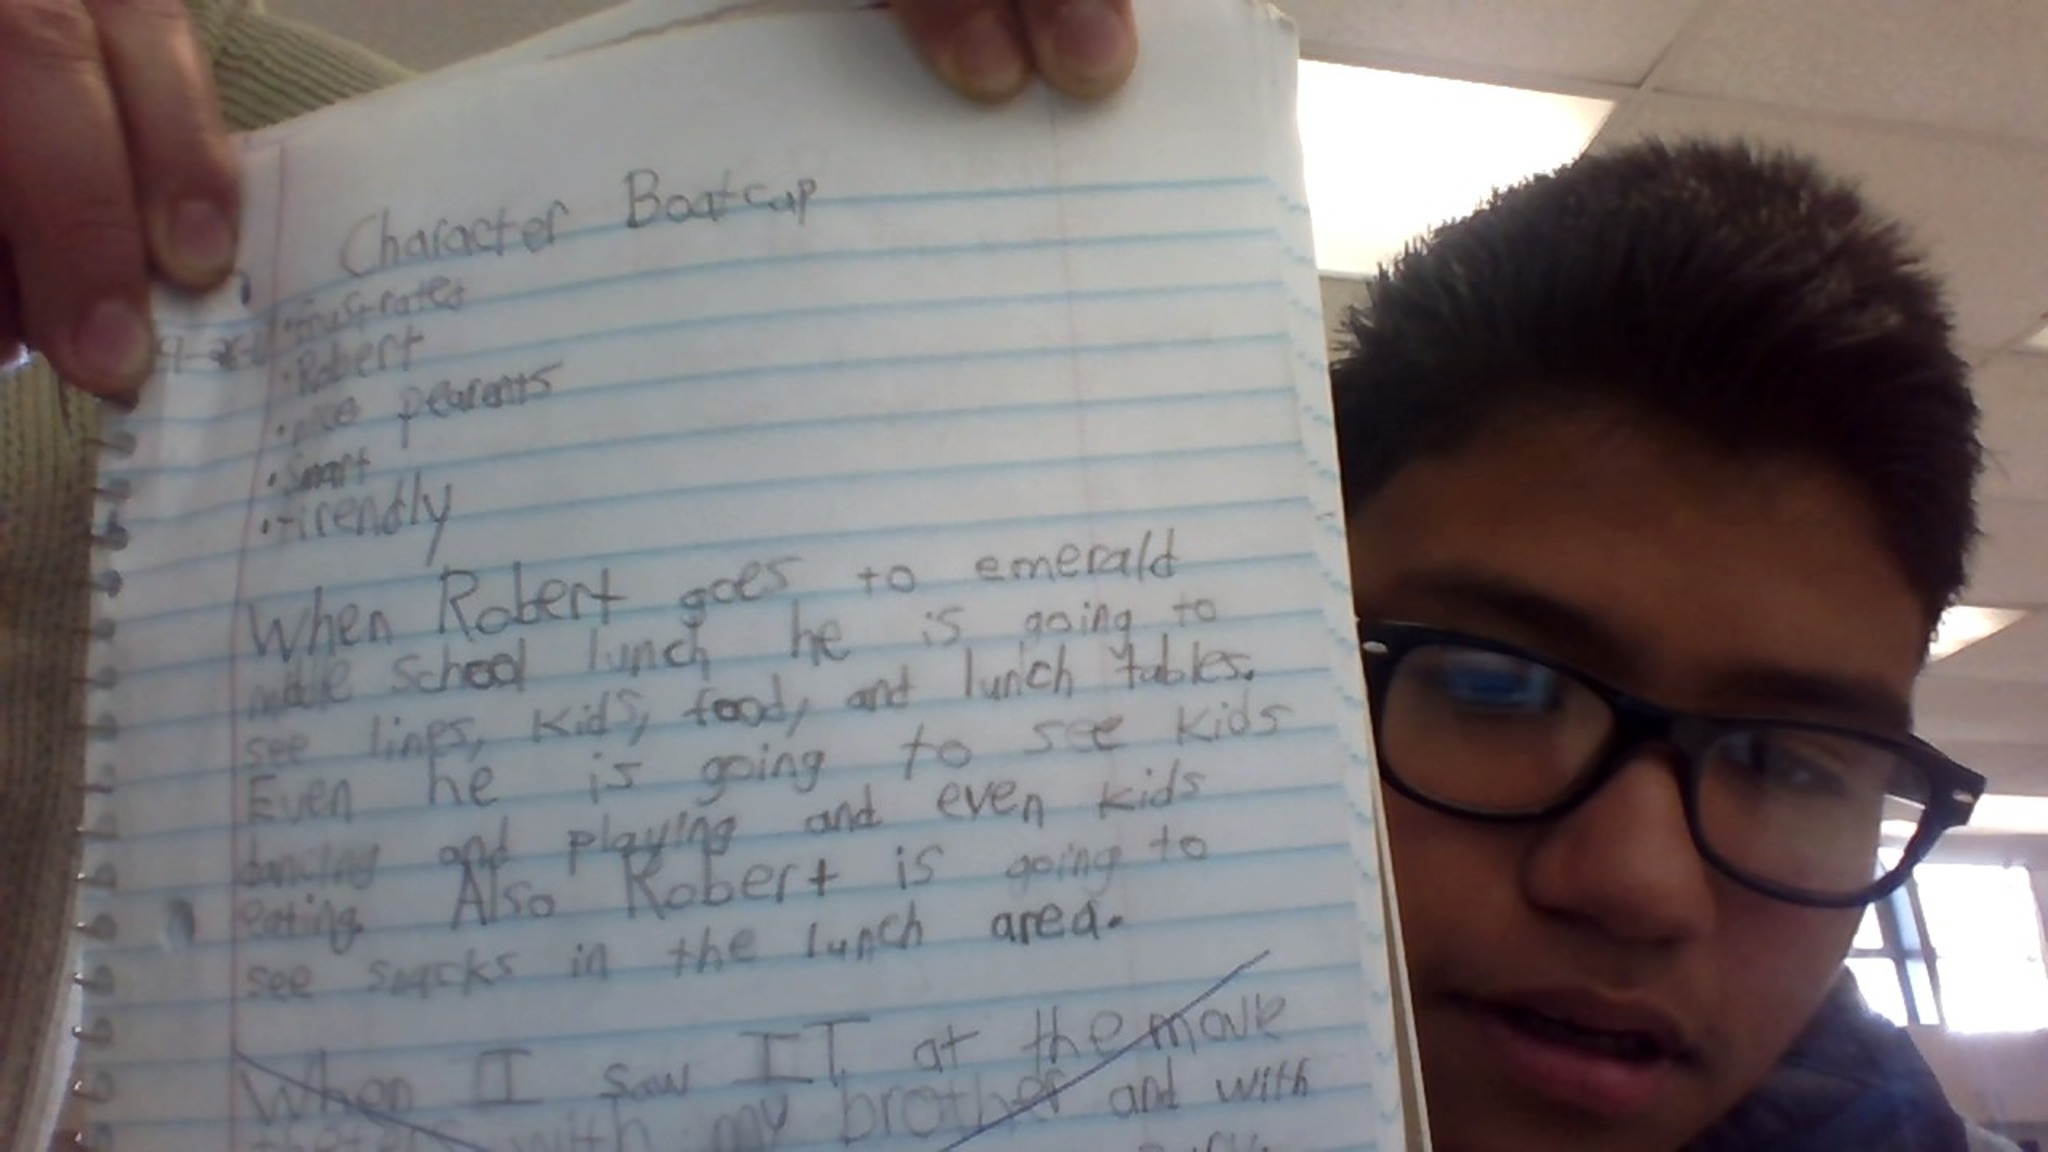 Character Boatcap
• frustrated
• Robert
• nice pearents
• Smart
• Firendly
When Robert goes to emerald
middle School lunch he is going to
see lines, kids, food, and lunch tables.
Even he is going to see kids
dancing and playing and even kids
eating. Also Robert is going to
see snacks in the lunch area.
When I saw IT at the movie
with my brother and with